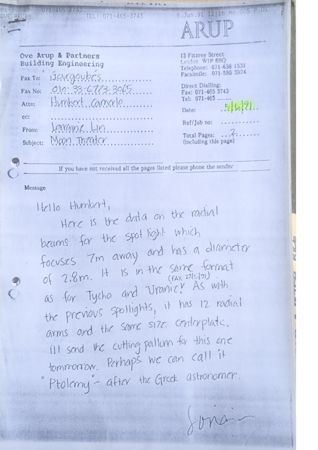 TEL: 071-465-3743
ARUP
Ove Arup & Partners
Building Engineering
13 Fitzroy Street
London W1P 6BQ
Telephone: 071-636 1531
Facsimile: 071-580 3924
Fax To:
Fax No:
Attn: Humbert
cc:
From: Lorraine Lin
Subject: Moon Theater
Direct Dialling:
Fax: 071-465 3743
Tel: 071-465
Date: 5/6/91
Ref/Job no:
Total Pages: 2
(including this page)
If you have not received all the pages listed please phone the sender
Message
Hello Humbert,
Here is the data on the radial
beams for the spot light which
focuses 7m away and has a diameter
of 2.8m. It is in the same format
(FAX
as for Tycho and Uranie! As with
the previous spotlights, it has 12 radial
arms and the same size centerplate.
I'll send the cutting pattern for this one
tommorrow. Perhaps we can call it
"Ptolemy" - after the Greek astronomer.